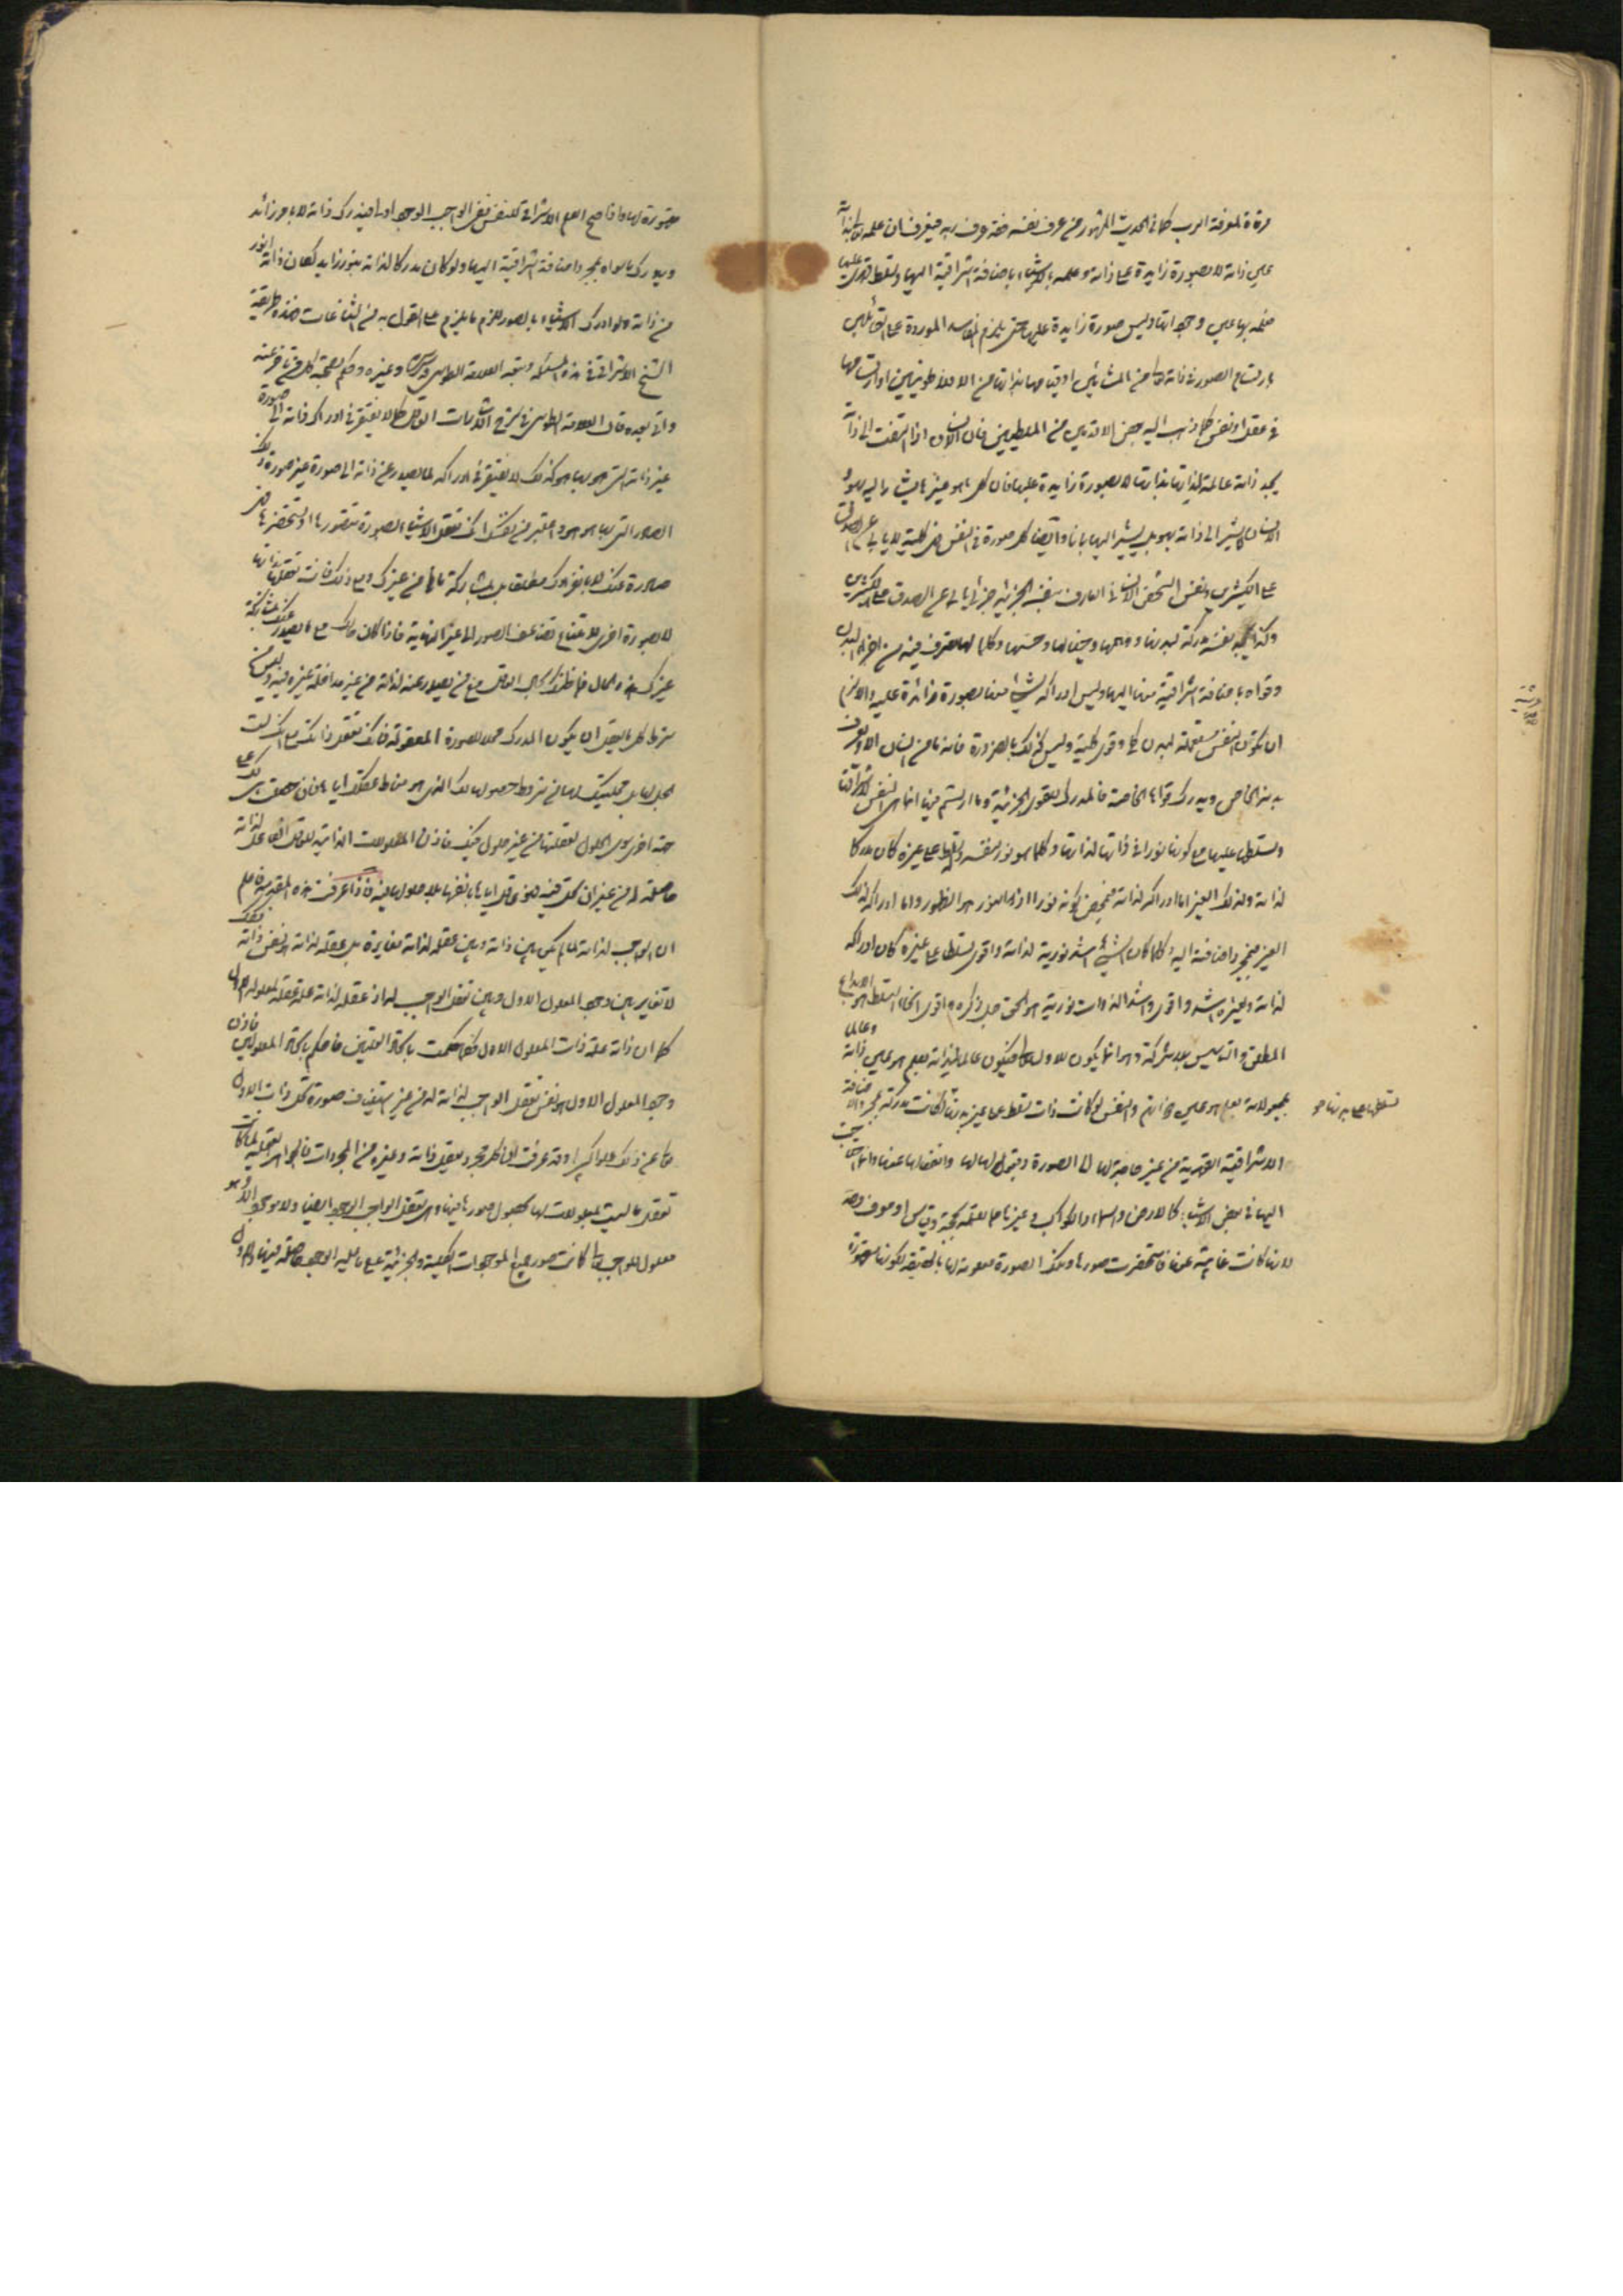 مرآة لمعرفة الرب كما فى الحديث المشهور من عرف نفسه فقد عرف ربه فيعرف ان علمه تعالى بذاته
عين ذاته لا بصورة زايدة على ذاته وعلمه بالاشياء باضافة اشراقية اليها وتسلط قهرى عليها
فعلمه بها عين وجوداتها وليس صورة زايدة عليها حتى يلزم المفاسد الموردة على القائلين
بارتسام الصور فى ذاته كما من المشائين او قيامها بذاتها من الافلاطونيين او ارتسامها
فى عقل او نفس كما ذهب اليه بعض الاقدمين من الملطيين فان الانسان اذا التفت الى ذاته
يجد ذاته عالمة لذاتها بذاتها لا بصورة زايدة عليها فان كل ما هو غير ما يشار اليه بهو
الانسان يشير الى ذاته بهو بل يشير اليها بانا وايضا كل صورة فى النفس فهى كلية لا يأبى عن الصدق
على الكثيرين ونفس الشخص الانسانى العارف بنفسه الجزئية جزئى يأبى عن الصدق على الكثيرين
وكذا يجد نفسه مدركة لبدنها ووهمها وخيالها وحسها وكلما لها تصرف فيه من اجزاء البدن
وقواه باضافة اشراقية منها اليها وليس ادراكه لشئ منها بصورة زائدة عليه والا لزم
ان يكون النفس مستعملة لبدن كلى وقوى كلية وليس كذلك بالضرورة فانه ما من انسان الا ويعرف
بدنه الخاص ويدرك قواه الخاصة فالمدرك للقوى الجزئية وما ارتسم فيها انما هى النفس لاشراقها
وتسلطها عليها مع كونها نورا فى ذاتها لذاتها وكلما هو نور لنفسه وتسلط على غيره كان مدركا
لذاته ولذلك الغير اما ادراكه لذاته فبمحض كونه نورا اذ النور هو الظهور واما ادراكه لذلك
الغير فبمجرد اضافة اليه وكلما كان الشئ اشد نورية لذاته واقوى تسلطا على غيره كان ادراكه
لذاته ولغيره اشد واقوى واشد الذوات نورية هو الحق جل ذكره واقوى انحاء التسلط هو الابداع
المطلق والتأسيس بلا شركة وهو انما يكون للاول تعالى فيكون عالما بذاته بعلم هو عين ذاته وعالما
بمجعولاته بعلم هو عين ذواتهم والنفس لما كانت ذات تسلط على غير بدنها لكانت مدركة بمجرد الاضافة
تسلطها على بدنها هو
الاشراقية القهرية من غير حاجة لها الى الصورة وقبولها لها وانفعالها عنها وانما احتاجت
اليها فى بعض الاشياء كالارض والسماء والكواكب وغيرها مما تعلمه بحجة وقياس او معرف وحد
لانها كانت غايبة عنها فاستحضرت صورها وتلك الصورة معلومة لها بالحقيقة لكونها مقهورة
مقهورة لها واذا صح العلم الاشراقى للنفس ففى الواجب الوجود اولى فيدرك ذاته لا بامر زائد
ويدرك ما سواه بمجرد اضافة اشراقية اليها ولو كان مدركا لذاته بنور زايد لكان ذاته انور
من ذاته ولو ادرك الاشياء بالصور للزم ما يلزم على القول به من الشناعات هذه طريقة
الشيخ الاشراقى فى هذه المسئلة وتبعه العلامة الطوسى وغيره وحكم بصحته كل من تأخر عنه
واتى بعده قال العلامة الطوسى فى شرح الاشارات العاقل كما لا يفتقر فى ادراك ذاته الى صورة
غير ذاته التى هو بها هو كذلك لا يفتقر فى ادراك ما يصدر عن ذاته الى صورة غير صورة ذلك
الصادر التى بها هو هو واعتبر من نفسك انك تعقل الاشياء بصورة تتصورها او تستحضرها فهى
صادرة عنك لا بانفرادك مطلقا بل بمشاركة ما من غيرك ومع ذلك فانت تعقلها بذاتها
لا بصورة اخرى لامتناع تضاعف الصور الى غير النهاية فاذا كان حالك مع ما يصدر عنك بمشاركة
غيرك هذه الحال فما ظنك بحال العاقل مع من يصدر عنه لذاته من غير مداخلة غيره فيه وليس من
شرط كل ما يعقل ان يكون المدرك محلا للصورة المعقولة فانك تعقل ذاتك مع انك لست
بمحل لها بل محليتك لها من شروط حصولها لك الذى هو مناط عقلك اياها فان حصلت لك على
جهة اخرى سوى الحلول لعقلتها من غير حلول فيك فاذن المعلولات الذاتية للعاقل الفاعل لذاته
حاصلة له من غير ان يحل فيه فهو عاقل اياها بانفسها بلا حلولها فيه فاذا عرفت هذه المقدمة فاعلم
ان الواجب لذاته لما لم يكن بين ذاته وبين عقله لذاته مغايرة بل عقله لذاته هو نفس ذاته فكذلك
لا تغاير بين وجود المعلول الاول وبين تعقل الواجب له اذ عقله لذاته علة عقله لمعلوله الاول
كما ان ذاته علة ذات المعلول الاول فكما حكمت باتحاد العلتين فاحكم باتحاد المعلولين فاذن
وجود المعلول الاول هو نفس تعقل الواجب لذاته له من غير استيناف صورة تحل ذات الاول
تعالى عن ذلك علوا كبيرا وقد عرفت ان كل مجرد يعقل ذاته وغيره من المجردات فالجواهر العقلية لما كانت
تعقل ما ليست بمعلولات لها بحصول صورها فيها وهى تعقل الواجب الوجود ايضا ولا موجود الا وهو
معلول للواجب تعالى كانت صور جميع الموجودات الكلية والجزئية على ما عليه الوجود حاصلة فيها والاول